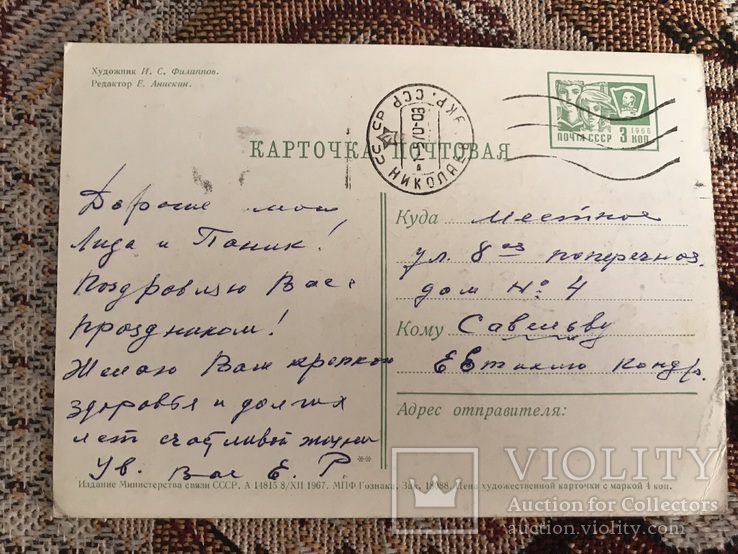 Художник И. С. Филиппов.
Редактор Е. Анискин.
УКР. ССР НИКОЛАЕВ
1966
ПОЧТА СССР 3 КОП
КАРТОЧКА ПОЧТОВАЯ
Дорогие мои
Лида и Поник!
Поздравляю Вас с
праздником!
Желаю Вам крепкого
здоровья и долгих
лет счастливой жизни
Ув. Вас Е. Р.
Куда Местное
ул. 8 ая поперечная
дом № 4
Кому Савельеву
Евтихию Кондр.
Адрес отправителя:
**
Издание Министерства связи СССР. А 14815 8/XII 1967. МПФ Гознака. Зак. 18988. Цена художественной карточки с маркой 4 коп.
VIOLITY
Auction for Collectors
auction.violity.com